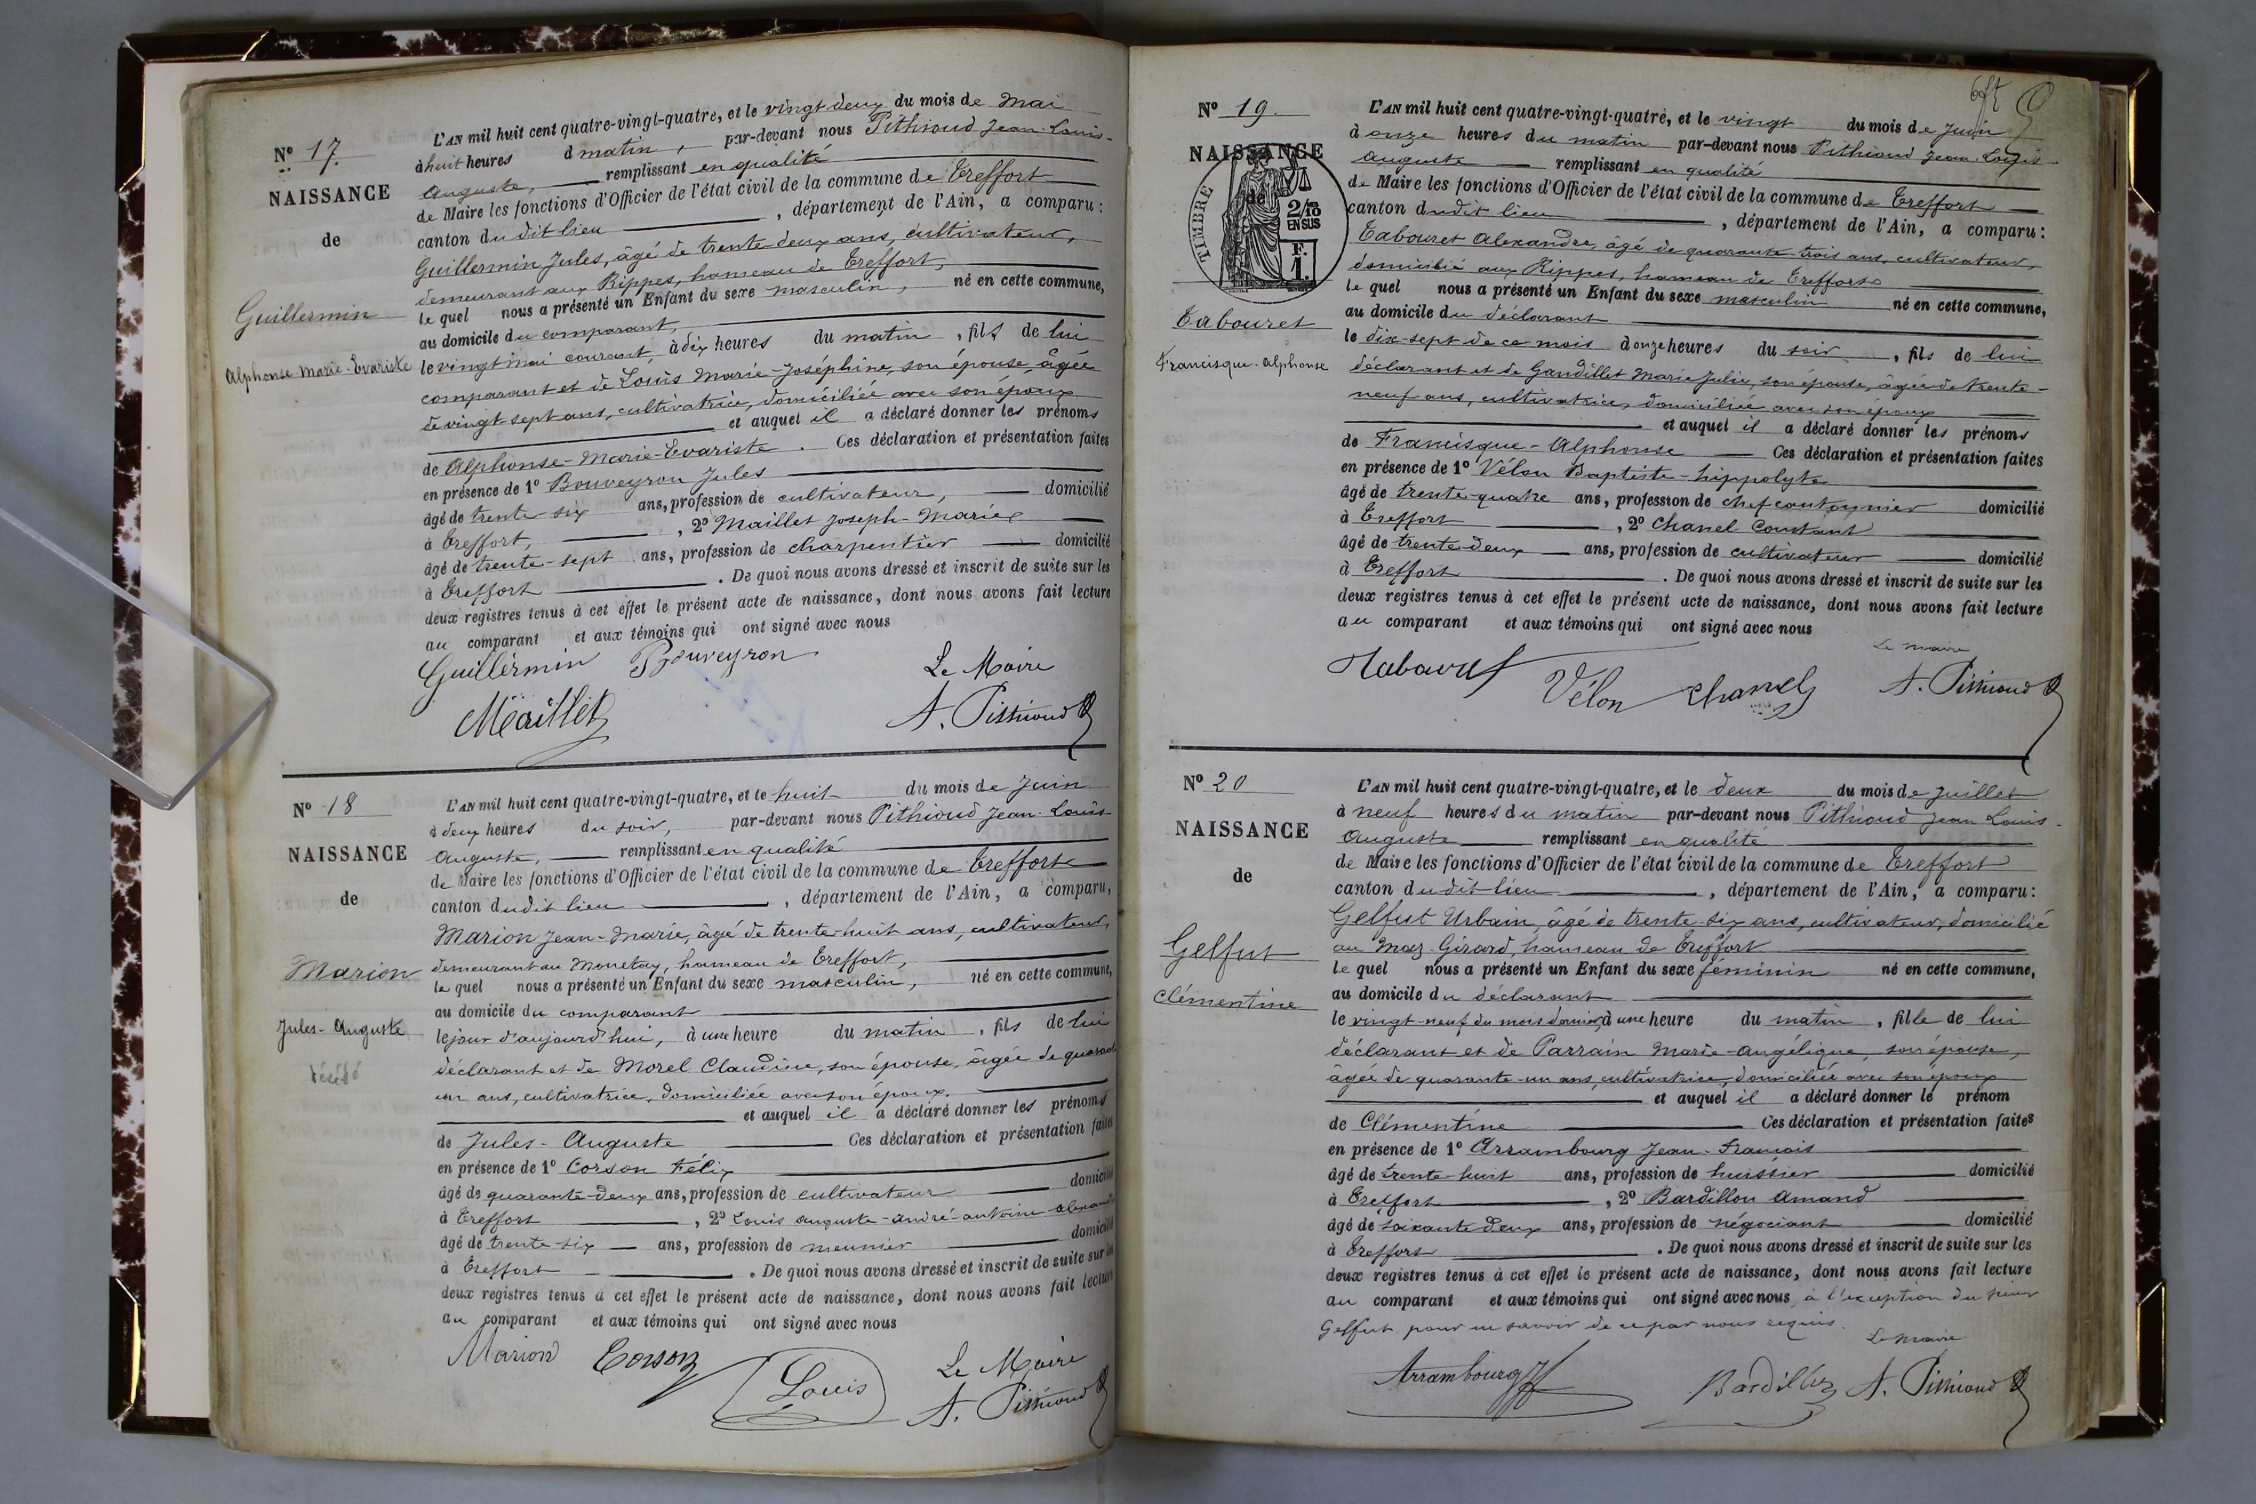 N° 17.
NAISSANCE
de
Guillermin
Alphonse-Marie-Evariste
L'AN mil huit cent quatre-vingt-quatre, et le vingt deux du mois de Mai
à huit heures d matin, par-devant nous Pithioud Jean-Louis-
Auguste, remplissant en qualité
de Maire les fonctions d'Officier de l'état civil de la commune de Treffort
canton du dit lieu, département de l'Ain, a comparu:
Guillermin Jules, âgé de trente deux ans, cultivateur,
demeurant aux Rippes, hameau de Treffort,
le quel nous a présenté un Enfant du sexe masculin, né en cette commune,
au domicile du comparant,
le vingt mai courant, à dix heures du matin, fils de lui
comparant et de Louis Marie-Joséphine, son épouse, âgée
de vingt sept ans, cultivatrice, domiciliée avec son époux
et auquel il a déclaré donner les prénoms
de Alphonse-Marie-Evariste. Ces déclaration et présentation faites
en présence de 1° Bouveyron Jules
âgé de trente six ans, profession de cultivateur, domicilié
à Treffort, , 2° Maillet Joseph-Marie
âgé de trente-sept ans, profession de charpentier domicilié
à Treffort . De quoi nous avons dressé et inscrit de suite sur les
deux registres tenus à cet effet le présent acte de naissance, dont nous avons fait lecture
au comparant et aux témoins qui ont signé avec nous
Guillermin Bouveyron Le Maire
Maillet A. Pithioud
N° 18
NAISSANCE
de
Marion
Jules-Auguste
décédé
L'AN mil huit cent quatre-vingt-quatre, et le huit du mois de Juin
à deux heures du soir, par-devant nous Pithioud Jean-Louis-
Auguste, remplissant en qualité
de Maire les fonctions d'Officier de l'état civil de la commune de Treffort
canton dudit lieu, département de l'Ain, a comparu,
Marion Jean-Marie, âgé de trente-huit ans, cultivateur,
demeurant au Monetay, hameau de Treffort,
le quel nous a présenté un Enfant du sexe masculin, né en cette commune,
au domicile du comparant
le jour d'aujourd'hui, à une heure du matin, fils de lui
déclarant et de Morel Claudine, son épouse, âgée de quarante
un ans, cultivatrice, domiciliée avec son époux.
et auquel il a déclaré donner les prénoms
de Jules-Auguste Ces déclaration et présentation faites
en présence de 1° Corson Félix
âgé de quarante-deux ans, profession de cultivateur domicilié
à Treffort , 2° Louis Auguste-André-Antoine-Alexandre
âgé de trente six ans, profession de meunier domicilié
à Treffort . De quoi nous avons dressé et inscrit de suite sur les
deux registres tenus à cet effet le présent acte de naissance, dont nous avons fait lecture
au comparant et aux témoins qui ont signé avec nous
Marion Corson Louis Le Maire
A. Pithioud
N° 19.
NAISSANCE
de
TIMBRE
2/10
EN SUS
F.
1.
Tabouret
Francisque-Alphonse
L'AN mil huit cent quatre-vingt-quatre, et le vingt du mois de Juin
à onze heures du matin par-devant nous Pithioud Jean Louis
Auguste remplissant en qualité
de Maire les fonctions d'Officier de l'état civil de la commune de Treffort
canton dudit lieu, département de l'Ain, a comparu:
Tabouret Alexandre, âgé de quarante-trois ans, cultivateur,
domicilié aux Rippes, hameau de Treffort
le quel nous a présenté un Enfant du sexe masculin né en cette commune,
au domicile du déclarant
le dix-sept de ce mois à onze heures du soir, fils de lui
déclarant et de Gandillet Marie Julie, son épouse, âgée de trente-
neuf ans, cultivatrice, domiciliée avec son époux
et auquel il a déclaré donner les prénoms
de Francisque-Alphonse Ces déclaration et présentation faites
en présence de 1° Vélon Baptiste-hippolyte
âgé de trente-quatre ans, profession de chef cantonnier domicilié
à Treffort , 2° Chanel Constant
âgé de trente-deux ans, profession de cultivateur domicilié
à Treffort . De quoi nous avons dressé et inscrit de suite sur les
deux registres tenus à cet effet le présent acte de naissance, dont nous avons fait lecture
au comparant et aux témoins qui ont signé avec nous
Le maire
Tabouret Vélon Chanel A. Pithioud
N° 20
NAISSANCE
de
Gelfut
Clémentine
L'AN mil huit cent quatre-vingt-quatre, et le deux du mois de Juillet
à neuf heures du matin par-devant nous Pithioud Jean Louis-
Auguste remplissant en qualité
de Maire les fonctions d'Officier de l'état civil de la commune de Treffort
canton dudit lieu, département de l'Ain, a comparu:
Gelfut Urbain, âgé de trente-six ans, cultivateur, domicilié
au Maz-Girard, hameau de Treffort
le quel nous a présenté un Enfant du sexe féminin né en cette commune,
au domicile du déclarant
le vingt-neuf du mois dernier, à une heure du matin, fille de lui
déclarant et de Parrain Marie-Angélique, son épouse,
âgée de quarante-un ans, cultivatrice, domiciliée avec son époux
et auquel il a déclaré donner le prénom
de Clémentine Ces déclaration et présentation faites
en présence de 1° Arrambourg Jean-François
âgé de trente-huit ans, profession de huissier domicilié
à Treffort , 2° Bardillon Amand
âgé de soixante deux ans, profession de négociant domicilié
à Treffort . De quoi nous avons dressé et inscrit de suite sur les
deux registres tenus à cet effet le présent acte de naissance, dont nous avons fait lecture
au comparant et aux témoins qui ont signé avec nous, à l'exception du sieur
Gelfut pour ne savoir de ce par nous requis.
Le maire
Arrambourg Bardillon A. Pithioud